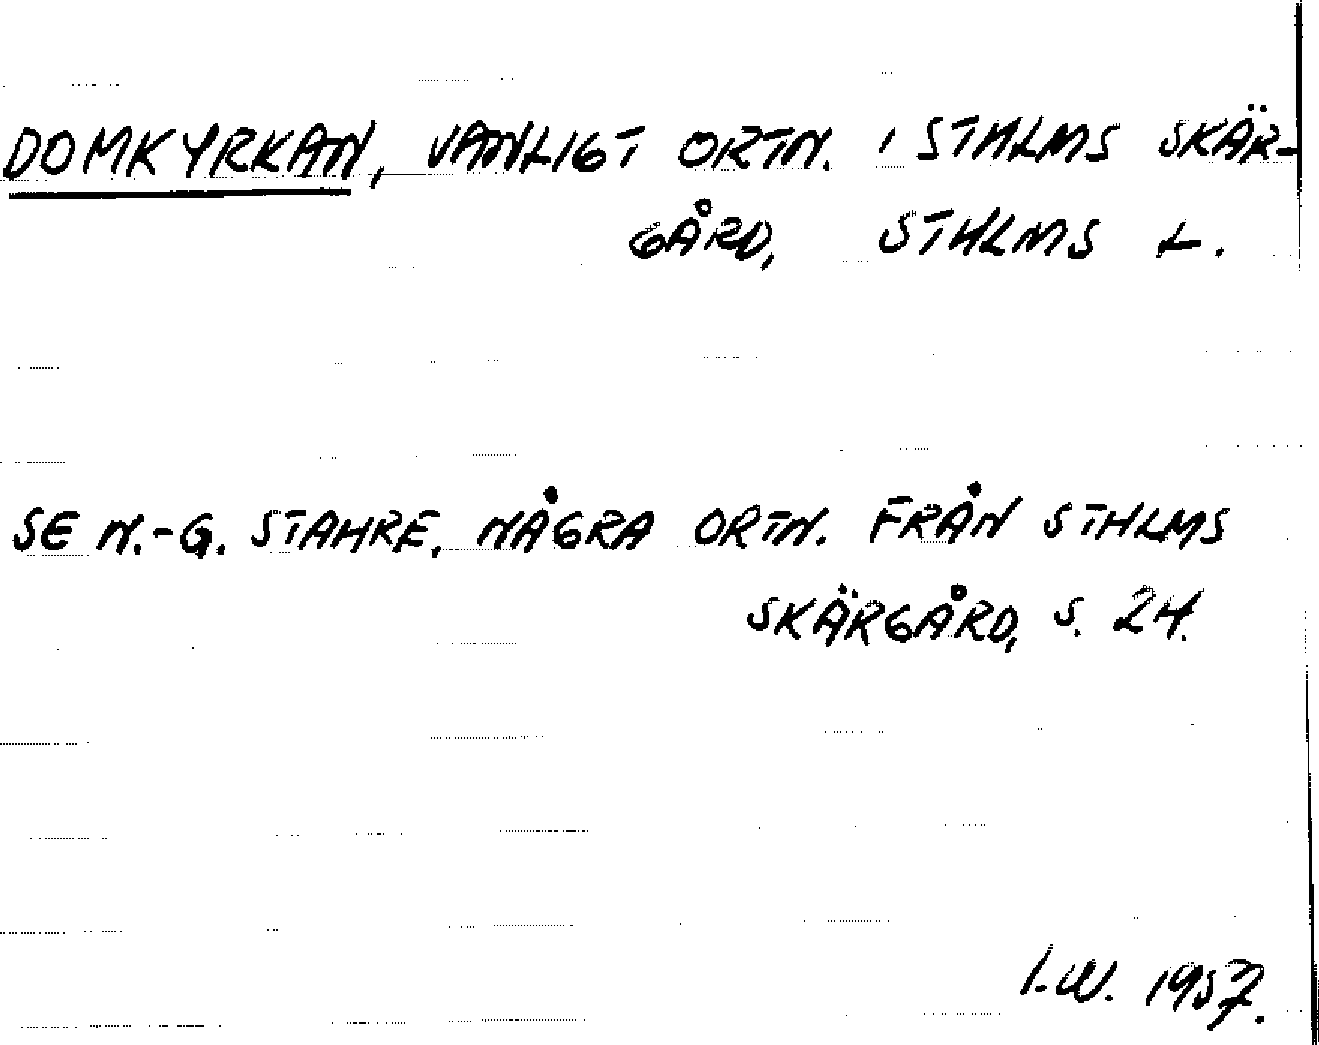 DOMKYRKAN, VANLIGT ORTN. I STHLMS SKÄR-
GÅRD, STHLMS L.
SE N.-G. STAHRE, NÅGRA ORTN. FRÅN STHLMS
SKÄRGÅRD, S. 24.
I.W. 1957.